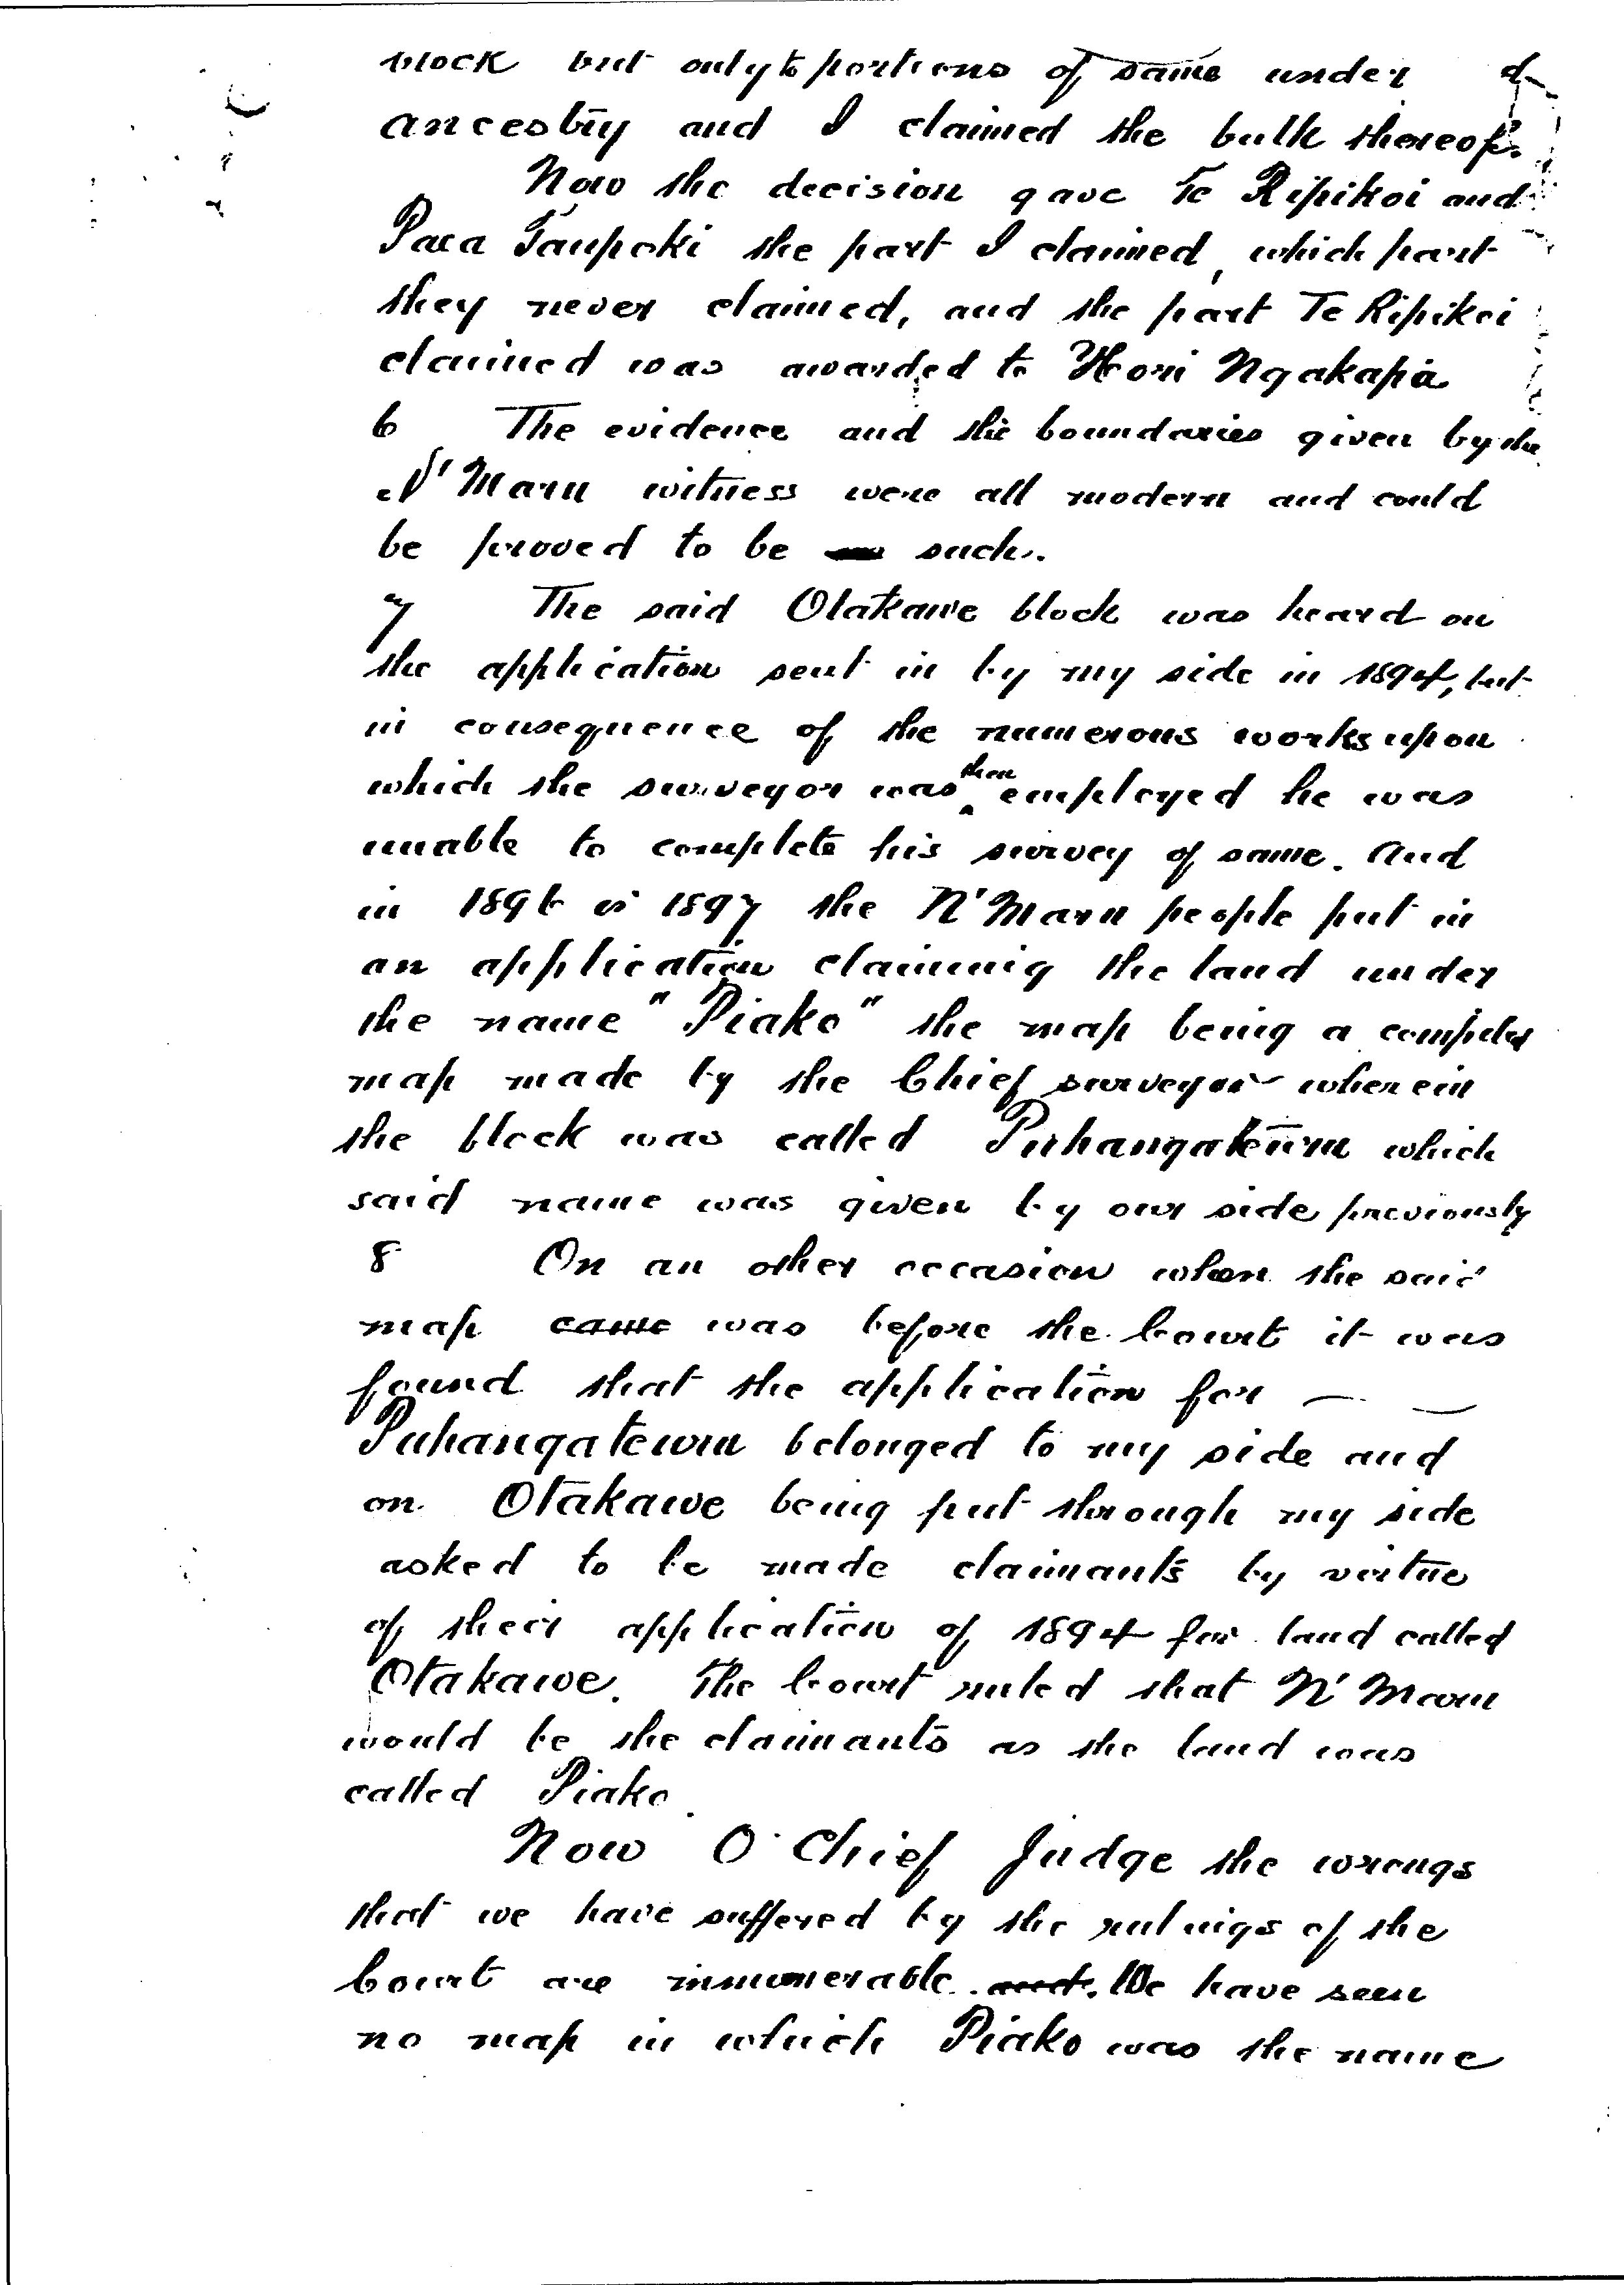 block but only to portions of same under
ancestry and I claimed the bulk thereof.
Now the decision gave Te Ripikoi and
Paea Taupoki the part I claimed, which part
they never claimed, and the part Te Ripikoi
claimed was awarded to Hori Ngakapa
6 The evidence and the boundaries given by the
N' Maru witness were all modern and could
be proved to be such.
7 The said Otakawe block was heard on
the application sent in by my side in 1894, but
in consequence of the numerous works upon
which the surveyor was then employed he was
unable to complete his survey of same. And
in 1896 or 1897 the N' Maru people put in
an application claiming the land under
the name "Piako" the map being a compiled
map made by the Chief surveyor wherein
the block was called Puhangateuru which
said name was given by our side previously
8 On an other occasion when the said
map came was before the Court it was
found that the application for
Puhangateuru belonged to my side and
on Otakawe being put through my side
asked to be made claimants by virtue
of their application of 1894 for land called
Otakawe. The Court ruled that N' Maru
would be the claimants as the land was
called Piako.
Now O Chief Judge the wrongs
that we have suffered by the rulings of the
Court are innumerable. and. We have seen
no map in which Piako was the name